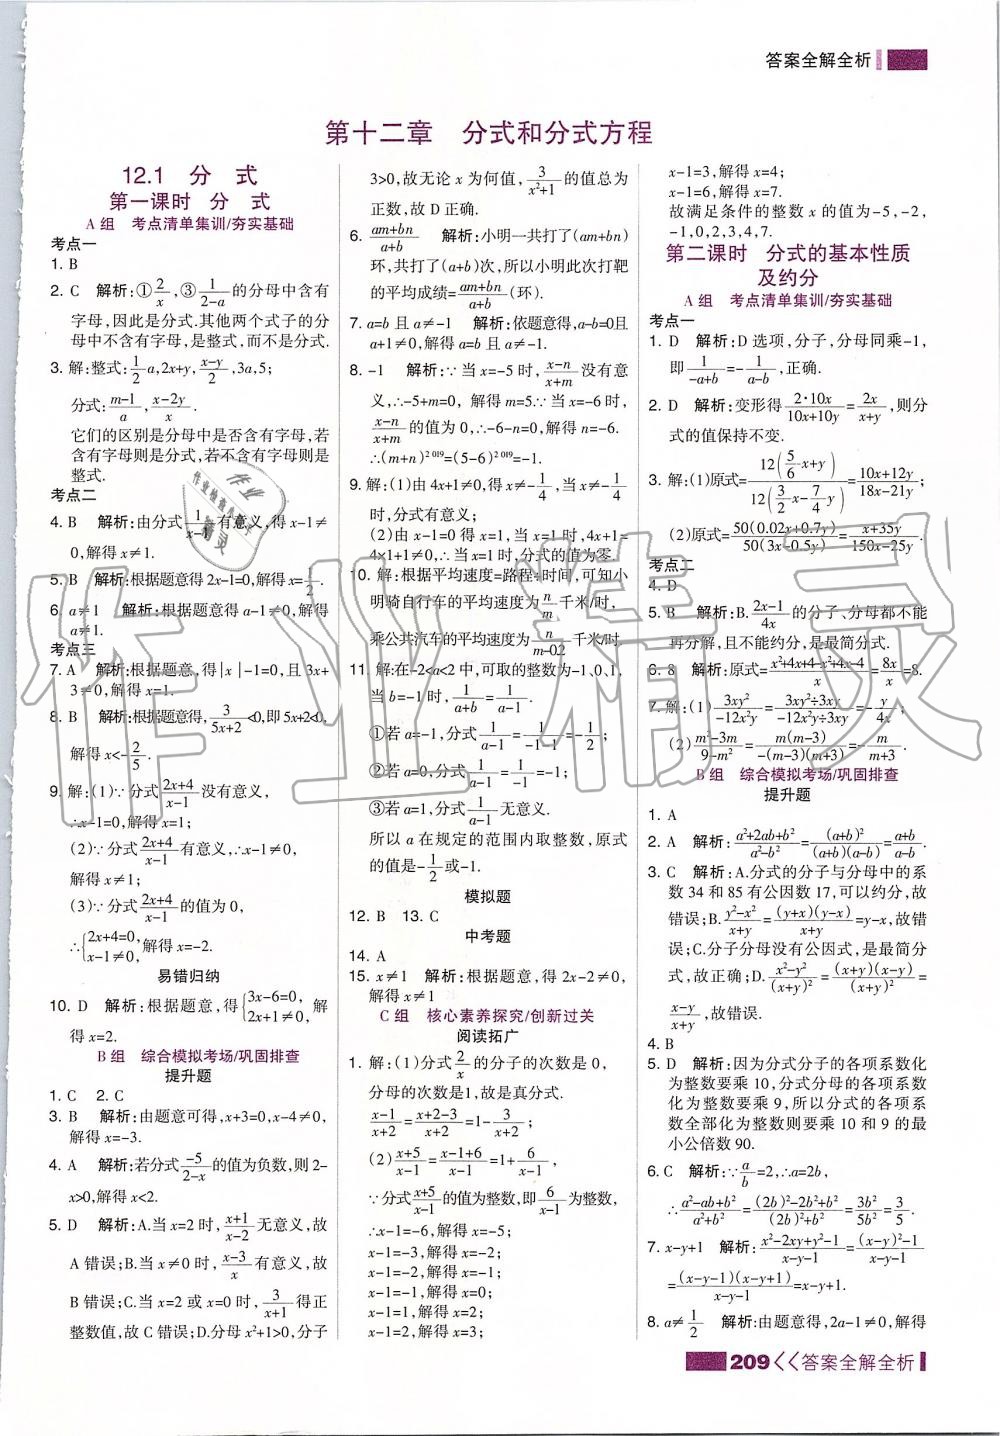 答案全解全析
第十二章 分式和分式方程
12.1 分 式
第一课时 分 式
A 组 考点清单集训/夯实基础
考点一
1. B
2. C 解析:①2/x,③1/(2-a)的分母中含有
字母,因此是分式.其他两个式子的分
母中不含有字母,是整式,而不是分式.
3. 解:整式:1/2 a,2x+y,(x-y)/2,3a,5;
分式:(m-1)/a,(x-2y)/x.
它们的区别是分母中是否含有字母,若
含有字母则是分式,若不含有字母则是
整式.
考点二
4. B 解析:由分式1/(x-1)有意义,得x-1≠
0,解得x≠1.
5. B 解析:根据题意得2x-1=0,解得x=1/2.
6. a≠1 解析:根据题意得a-1≠0,解得
a≠1.
考点三
7. A 解析:根据题意,得|x|-1=0,且3x+
3≠0,解得x=1.
8. B 解析:根据题意得,3/(5x+2)<0,即5x+2<0,
解得x<-2/5.
9. 解:(1)∵分式(2x+4)/(x-1)没有意义,
∴x-1=0,解得x=1;
(2)∵分式(2x+4)/(x-1)有意义,∴x-1≠0,
解得x≠1;
(3)∵分式(2x+4)/(x-1)的值为0,
∴{2x+4=0, x-1≠0,解得x=-2.
易错归纳
10. D 解析:根据题意,得{3x-6=0, 2x+1≠0,解
得x=2.
B 组 综合模拟考场/巩固排查
提升题
1. C 2. C
3. B 解析:由题意可得,x+3=0,x-4≠0,
解得x=-3.
4. A 解析:若分式-5/(2-x)的值为负数,则2-
x>0,解得x<2.
5. D 解析:A.当x=2时,(x+1)/(x-2)无意义,故
A错误;B.当x≠0时,(x-3)/x有意义,故
B错误;C.当x=2或x=0时,3/(x+1)得正
整数值,故C错误;D.分母x²+1>0,分子
3>0,故无论x为何值,3/(x²+1)的值总为
正数,故D正确.
6. (am+bn)/(a+b) 解析:小明一共打了(am+bn)
环,共打了(a+b)次,所以小明此次打靶
的平均成绩=(am+bn)/(a+b)(环).
7. a=b且a≠-1 解析:依题意得,a-b=0且
a+1≠0,解得a=b且a≠-1.
8. -1 解析:∵当x=-5时,(x-n)/(x+m)没有意
义,∴-5+m=0, 解得m=5.∵当x=-6时,
(x-n)/(x+m)的值为0,∴-6-n=0,解得n=-6.
∴(m+n)^2 019=(5-6)^2 019=-1.
9. 解:(1)由4x+1≠0,得x≠-1/4,当x≠-1/4
时,分式有意义;
(2)由x-1=0得x=1,当x=1时,4x+1=
4×1+1≠0,∴当x=1时,分式的值为零.
10. 解:根据平均速度=路程÷时间,可知小
明骑自行车的平均速度为n/m千米/时,
乘公共汽车的平均速度为n/(m-0.2)千米/时.
11. 解:在-2<a<2中,可取的整数为-1,0,1,
当b=-1时,1/(a+b)=1/(a-1).
①若a=-1,分式1/(a-1)=1/(-1-1)=-1/2;
②若a=0,分式1/(a-1)=1/-1=-1;
③若a=1,分式1/(a-1)无意义.
所以a在规定的范围内取整数,原式
的值是-1/2或-1.
模拟题
12. B 13. C
中考题
14. A
15. x≠1 解析:根据题意,得2x-2≠0,
解得x≠1
C 组 核心素养探究/创新过关
阅读拓广
1. 解:(1)分式2/x的分子的次数是0,
分母的次数是1,故是真分式.
(x-1)/(x+2)=(x+2-3)/(x+2)=1-3/(x+2);
(2)(x+5)/(x-1)=(x-1+6)/(x-1)=1+6/(x-1),
∵分式(x+5)/(x-1)的值为整数,即6/(x-1)为整数,
∴x-1=-6,解得x=-5;
x-1=-3,解得x=-2;
x-1=-2,解得x=-1;
x-1=-1,解得x=0;
x-1=1,解得x=2;
x-1=2,解得x=3;
x-1=3,解得x=4;
x-1=6,解得x=7.
故满足条件的整数x的值为-5,-2,
-1,0,2,3,4,7.
第二课时 分式的基本性质
及约分
A 组 考点清单集训/夯实基础
考点一
1. D 解析:D选项,分子,分母同乘-1,
即1/(-a+b)=-1/(a-b),正确.
2. D 解析:变形得(2·10x)/(10x+10y)=2x/(x+y),则分
式的值保持不变.
3. 解:(1)原式=12(5/6 x+y)/12(3/2 x-7/4 y)=(10x+12y)/(18x-21y).
(2)原式=50(0.02x+0.7y)/50(3x-0.5y)=(x+35y)/(150x-25y).
考点二
4. D
5. B 解析:B.(2x-1)/4x的分子、分母都不能
再分解,且不能约分,是最简分式.
6. 8 解析:原式=(x²+4x+4-x²+4x-4)/x=8x/x=8.
7. 解:(1)3xy²/(-12x²y)=(3xy²÷3xy)/(-12x²y÷3xy)=-y/4x.
(2)(m²-3m)/(9-m²)=m(m-3)/(-(m-3)(m+3))=-m/(m+3).
B 组 综合模拟考场/巩固排查
提升题
1. A
2. A 解析:(a²+2ab+b²)/(a²-b²)=(a+b)²/((a+b)(a-b))=(a+b)/(a-b).
3. C 解析:A.分式的分子与分母中的系
数34和85有公因数17,可以约分,故
错误;B.(y²-x²)/(x+y)=(y+x)(y-x)/(x+y)=y-x,故错
误;C.分子分母没有公因式,是最简分
式,故正确;D.(x²-y²)/(x+y)²=(x+y)(x-y)/(x+y)²=
(x-y)/(x+y),故错误.
4. B
5. D 解析:因为分式分子的各项系数化
为整数要乘10,分式分母的各项系数
化为整数要乘9,所以分式的各项系
数全部化为整数则要乘10和9的最
小公倍数90.
6. C 解析:∵a/b=2,∴a=2b,
∴(a²-ab+b²)/(a²+b²)=((2b)²-2b²+b²)/((2b)²+b²)=3b²/5b²=3/5.
7. x-y+1 解析:(x²-2xy+y²-1)/(x-y-1)=((x-y)²-1)/(x-y-1)
=(x-y-1)(x-y+1)/(x-y-1)=x-y+1.
8. a≠1/2 解析:由题意得,2a-1≠0,解得
209<<答案全解全析
作业精灵